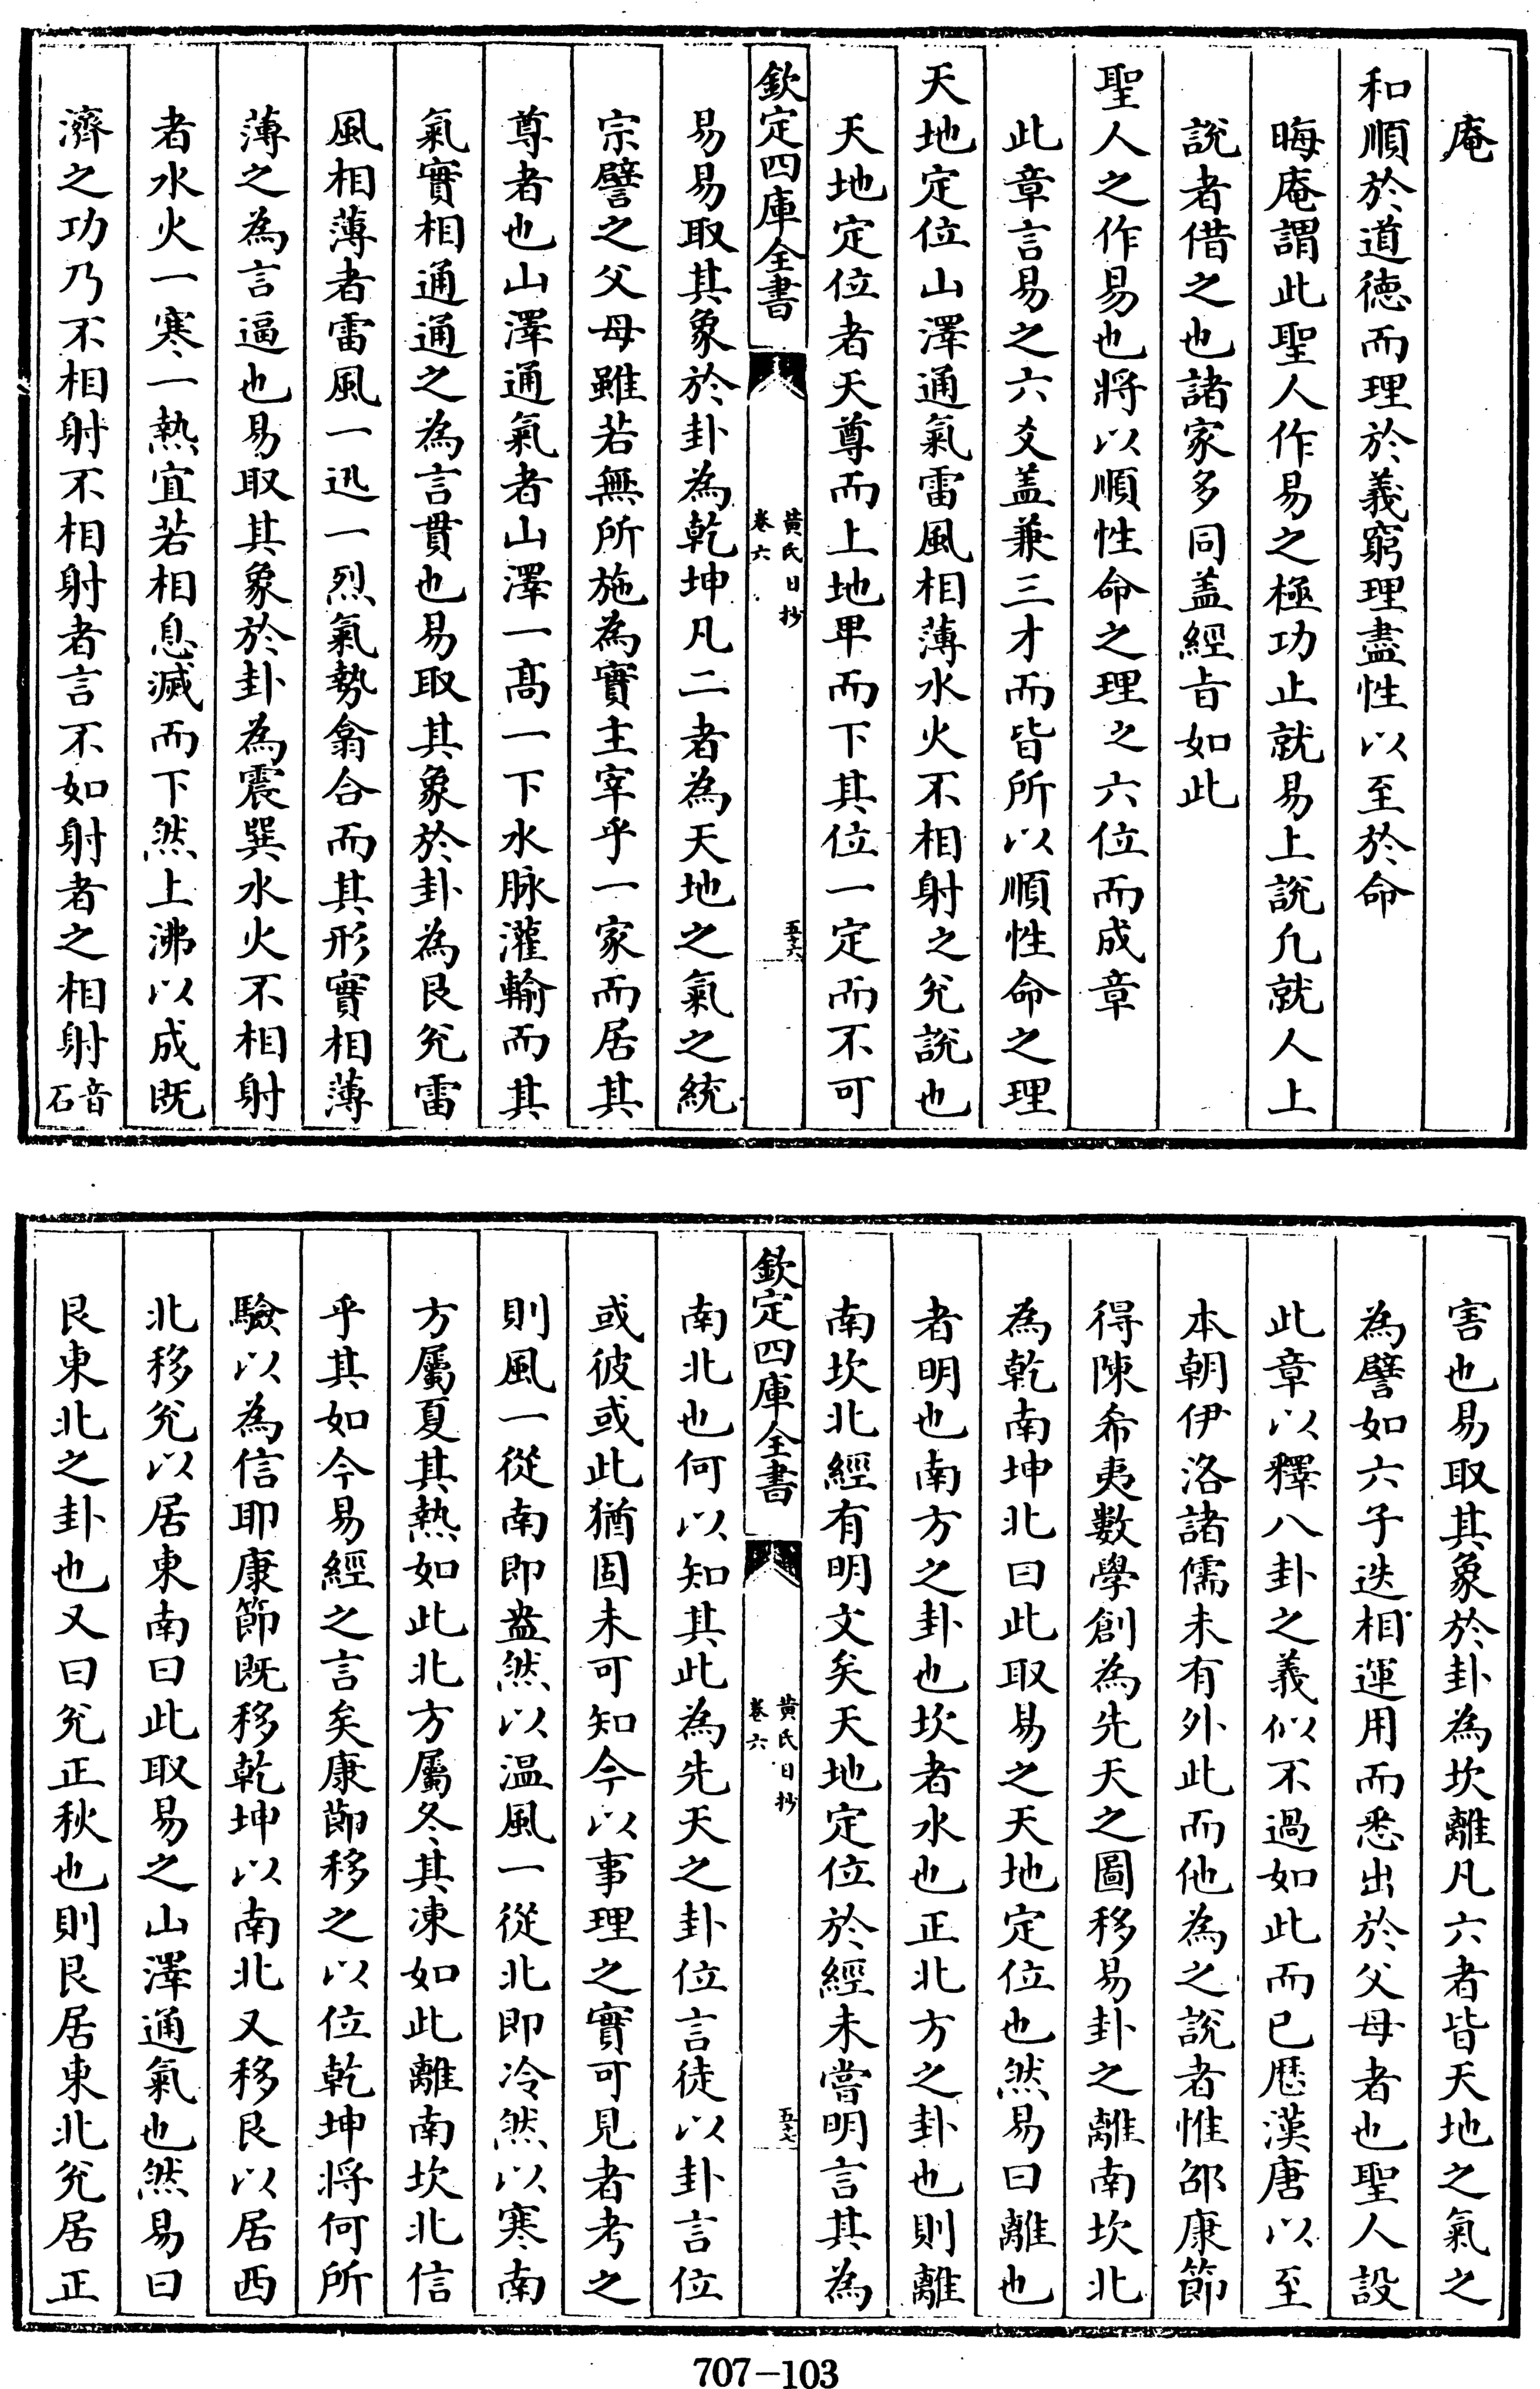 庵
和順於道徳而理於義窮理盡性以至於命
晦庵謂此聖人作易之極功止就易上說凢就人上
說者借之也諸家多同盖經㫖如此
聖人之作易也將以順性命之理之六位而成章
此章言易之六爻盖兼三才而皆所以順性命之理
天地定位山澤通氣雷風相薄水火不相射之兊說也
天地定位者天尊而上地𤰞而下其位一定而不可
欽定四庫全書
黄氏日抄
卷六
五十六
易易取其象於卦為乾坤凡二者為天地之氣之統
宗譬之父母雖若無所施為實主宰乎一家而居其
尊者也山澤通氣者山澤一髙一下水脉灌輸而其
氣實相通通之為言貫也易取其象於卦為艮兊雷
風相薄者雷風一迅一烈氣勢翕合而其形實相薄
薄之為言逼也易取其象於卦為震巽水火不相射
者水火一寒一熱宜若相息滅而下然上沸以成既
濟之功乃不相射不相射者言不如射者之相射音石
害也易取其象於卦為坎離凡六者皆天地之氣之
為譬如六子迭相運用而悉出於父母者也聖人設
此章以釋八卦之義似不過如此而已厯漢唐以至
本朝伊洛諸儒未有外此而他為之說者惟邵康節
得陳希夷數學創為先天之圖移易卦之離南坎北
為乾南坤北曰此取易之天地定位也然易曰離也
者明也南方之卦也坎者水也正北方之卦也則離
南坎北經有明文矣天地定位於經未嘗明言其為
欽定四庫全書
黄氏日抄
卷六
五十七
南北也何以知其此為先天之卦位言徒以卦言位
或彼或此猶固未可知今以事理之實可見者考之
則風一從南即盎然以温風一從北即冷然以寒南
方屬夏其熱如此北方屬冬其凍如此離南坎北信
乎其如今易經之言矣康節移之以位乾坤將何所
驗以為信耶康節既移乾坤以南北又移艮以居西
北移兊以居東南曰此取易之山澤通氣也然易曰
艮東北之卦也又曰兊正秋也則艮居東北兊居正
707-103